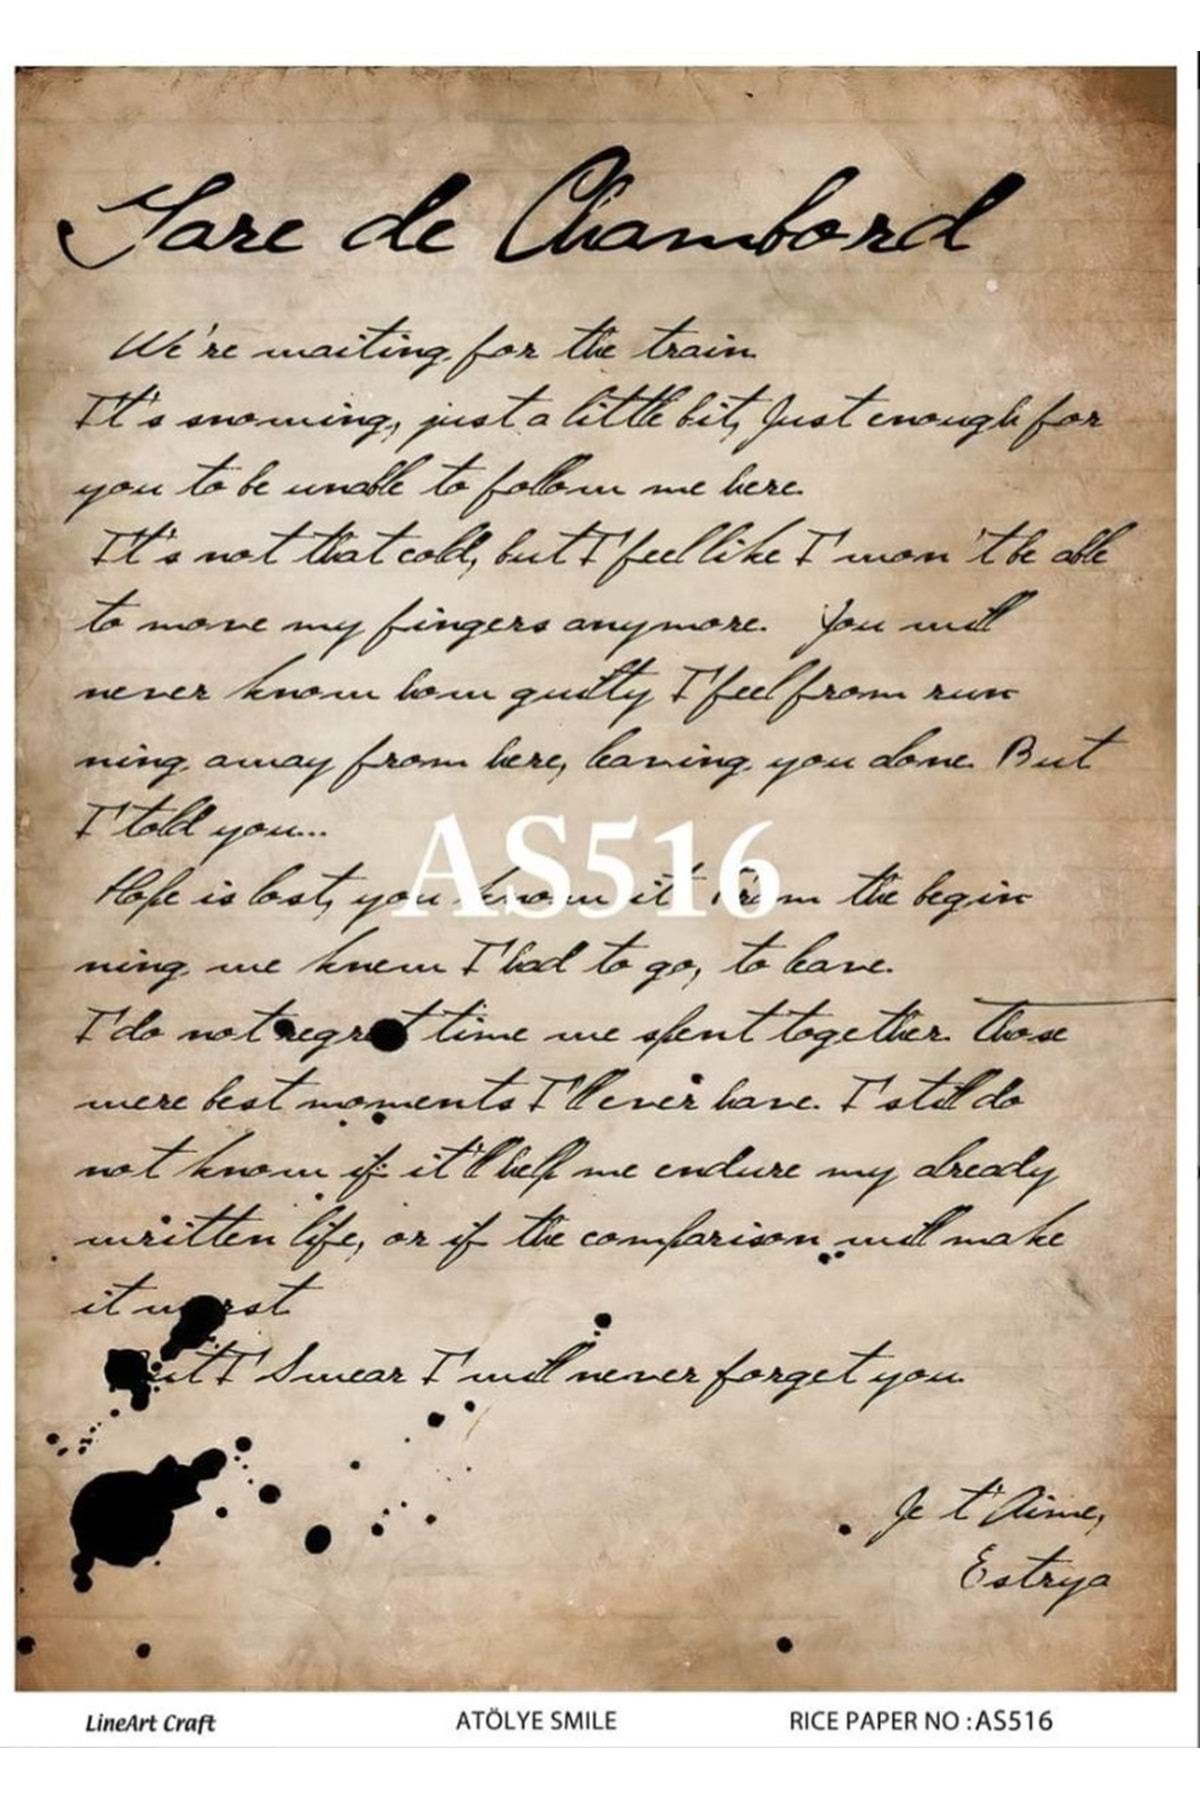 Gare de Chambord
We're waiting for the train.
It's snowing, just a little bit, Just enough for
you to be unable to follow me here.
It's not that cold, but I feel like I won't be able
to move my fingers anymore. You will
never know how guilty I feel from run
ning away from here, leaving you alone. But
I told you...
Hope is lost, you know it. From the begin
ning we knew I had to go, to leave.
I do not regret time we spent together. Those
were best moments I'll ever have. I still do
not know if it'll help me endure my already
written life, or if the comparison will make
it worst
But I Swear I will never forget you.
Je t'Aime,
Estrya
AS516
LineArt Craft
ATÖLYE SMILE
RICE PAPER NO : AS516